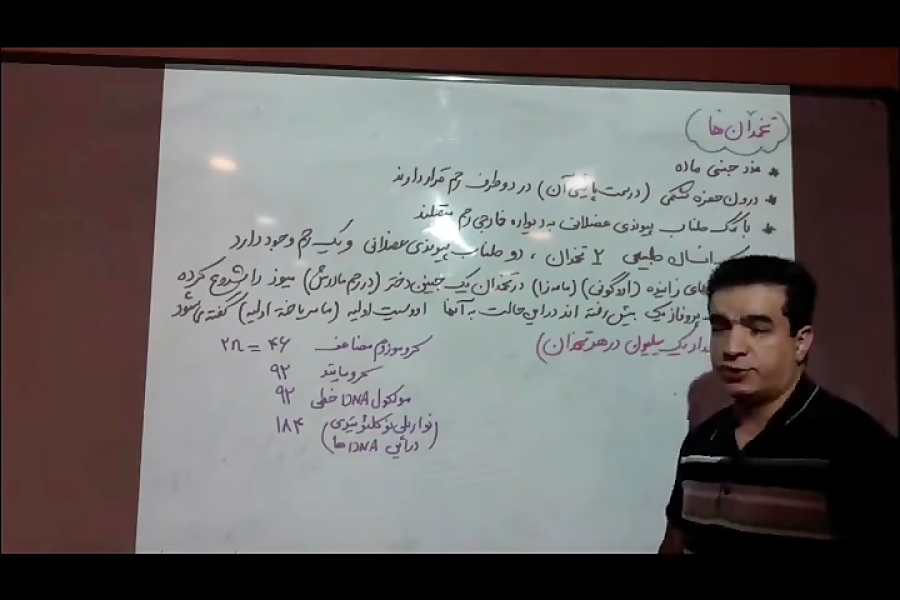 تخمدان‌ها
* غدد جنسی ماده
* درون حفره شکمی (درسمت پایینی آن) در دو طرف رحم قرار دارند
* با کمک طناب پیوندی عضلانی به دیواره خارجی رحم متصلند
انسان طبیعی ۲ تخمدان ، دو طناب پیوندی عضلانی و یک رحم وجود دارد
های زاینده (اووگونی) (مامه‌زا) در تخمدان یک جنین دختر (در رحم مادرش) میوز را شروع کرده
پروفاز یک پیش رفته اند در این حالت به آنها اووسیت اولیه (مام یاخته اولیه) گفته می‌شود
یک میلیون در هر تخمدان)
کروموزوم مضاعف ۲n = ۴۶
کروماتید ۹۲
مولکول DNA خطی ۹۲
نوار پلی نوکلئوتیدی ۱۸۴
(در این DNA ها)